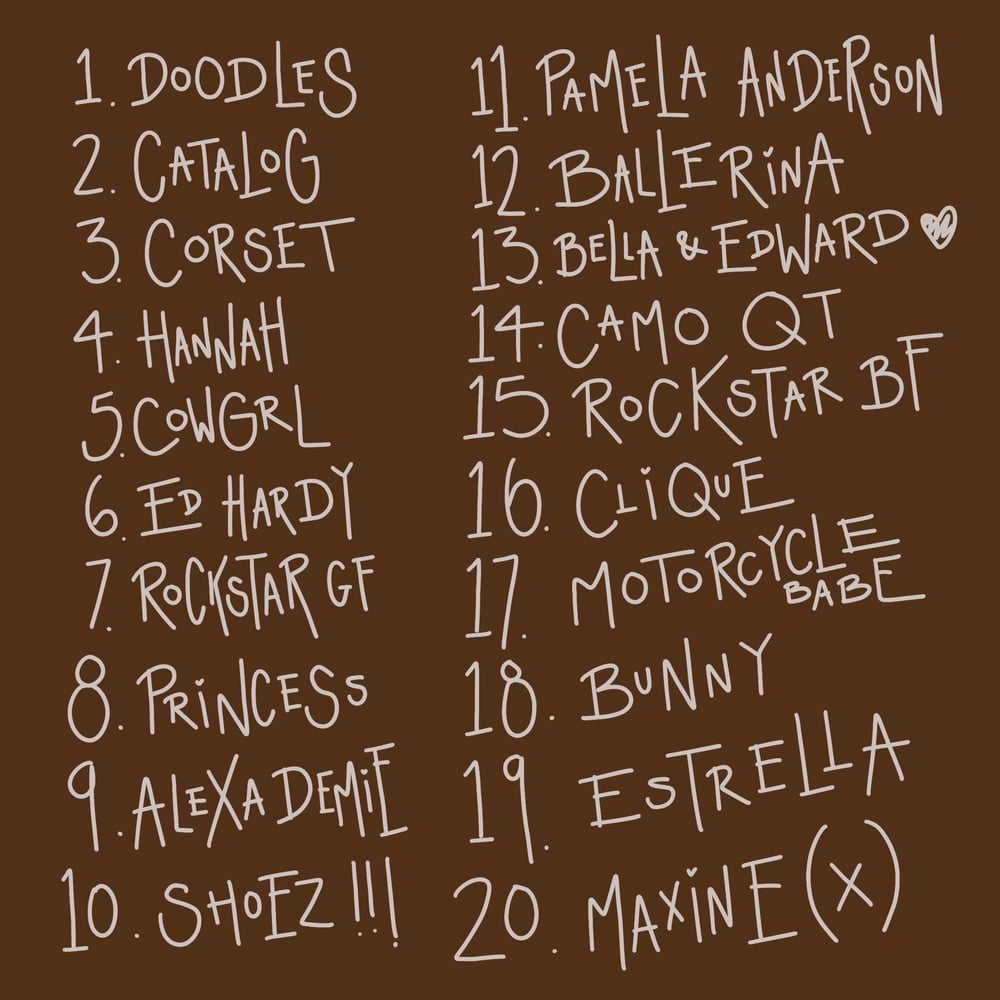 1. DOODLES
2. CATALOG
3. CORSET
4. HANNAH
5. COWGRL
6. ED HARDY
7. ROCKSTAR GF
8. PRiNCESS
9. ALEXA DEMiE
10. SHOEZ !!!
11. PAMELA ANDERSON
12. BALLERiNA
13. BELLA & EDWARD ♥
14. CAMO QT
15. ROCKSTAR BF
16. CLiQUE
17. MOTORCYCLE
BABE
18. BUNNY
19. ESTRELLA
20. MAXiNE (X)